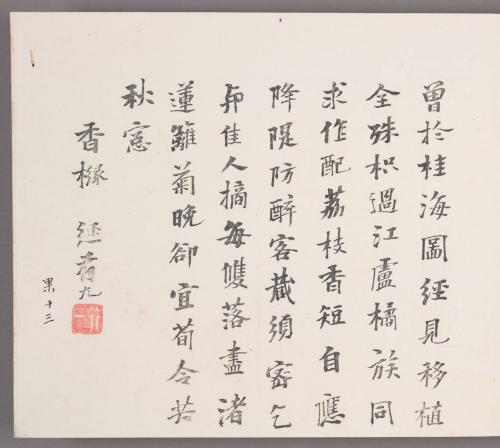 曾於桂海圖經見移植
全殊枳過江盧橘族同
求作配荔枝香短自應
降隄防醉客藏須密乞
佳人摘每雙落盡渚
蓮籬菊晚卻宜荀令荅
秋窓
香櫞
果十三